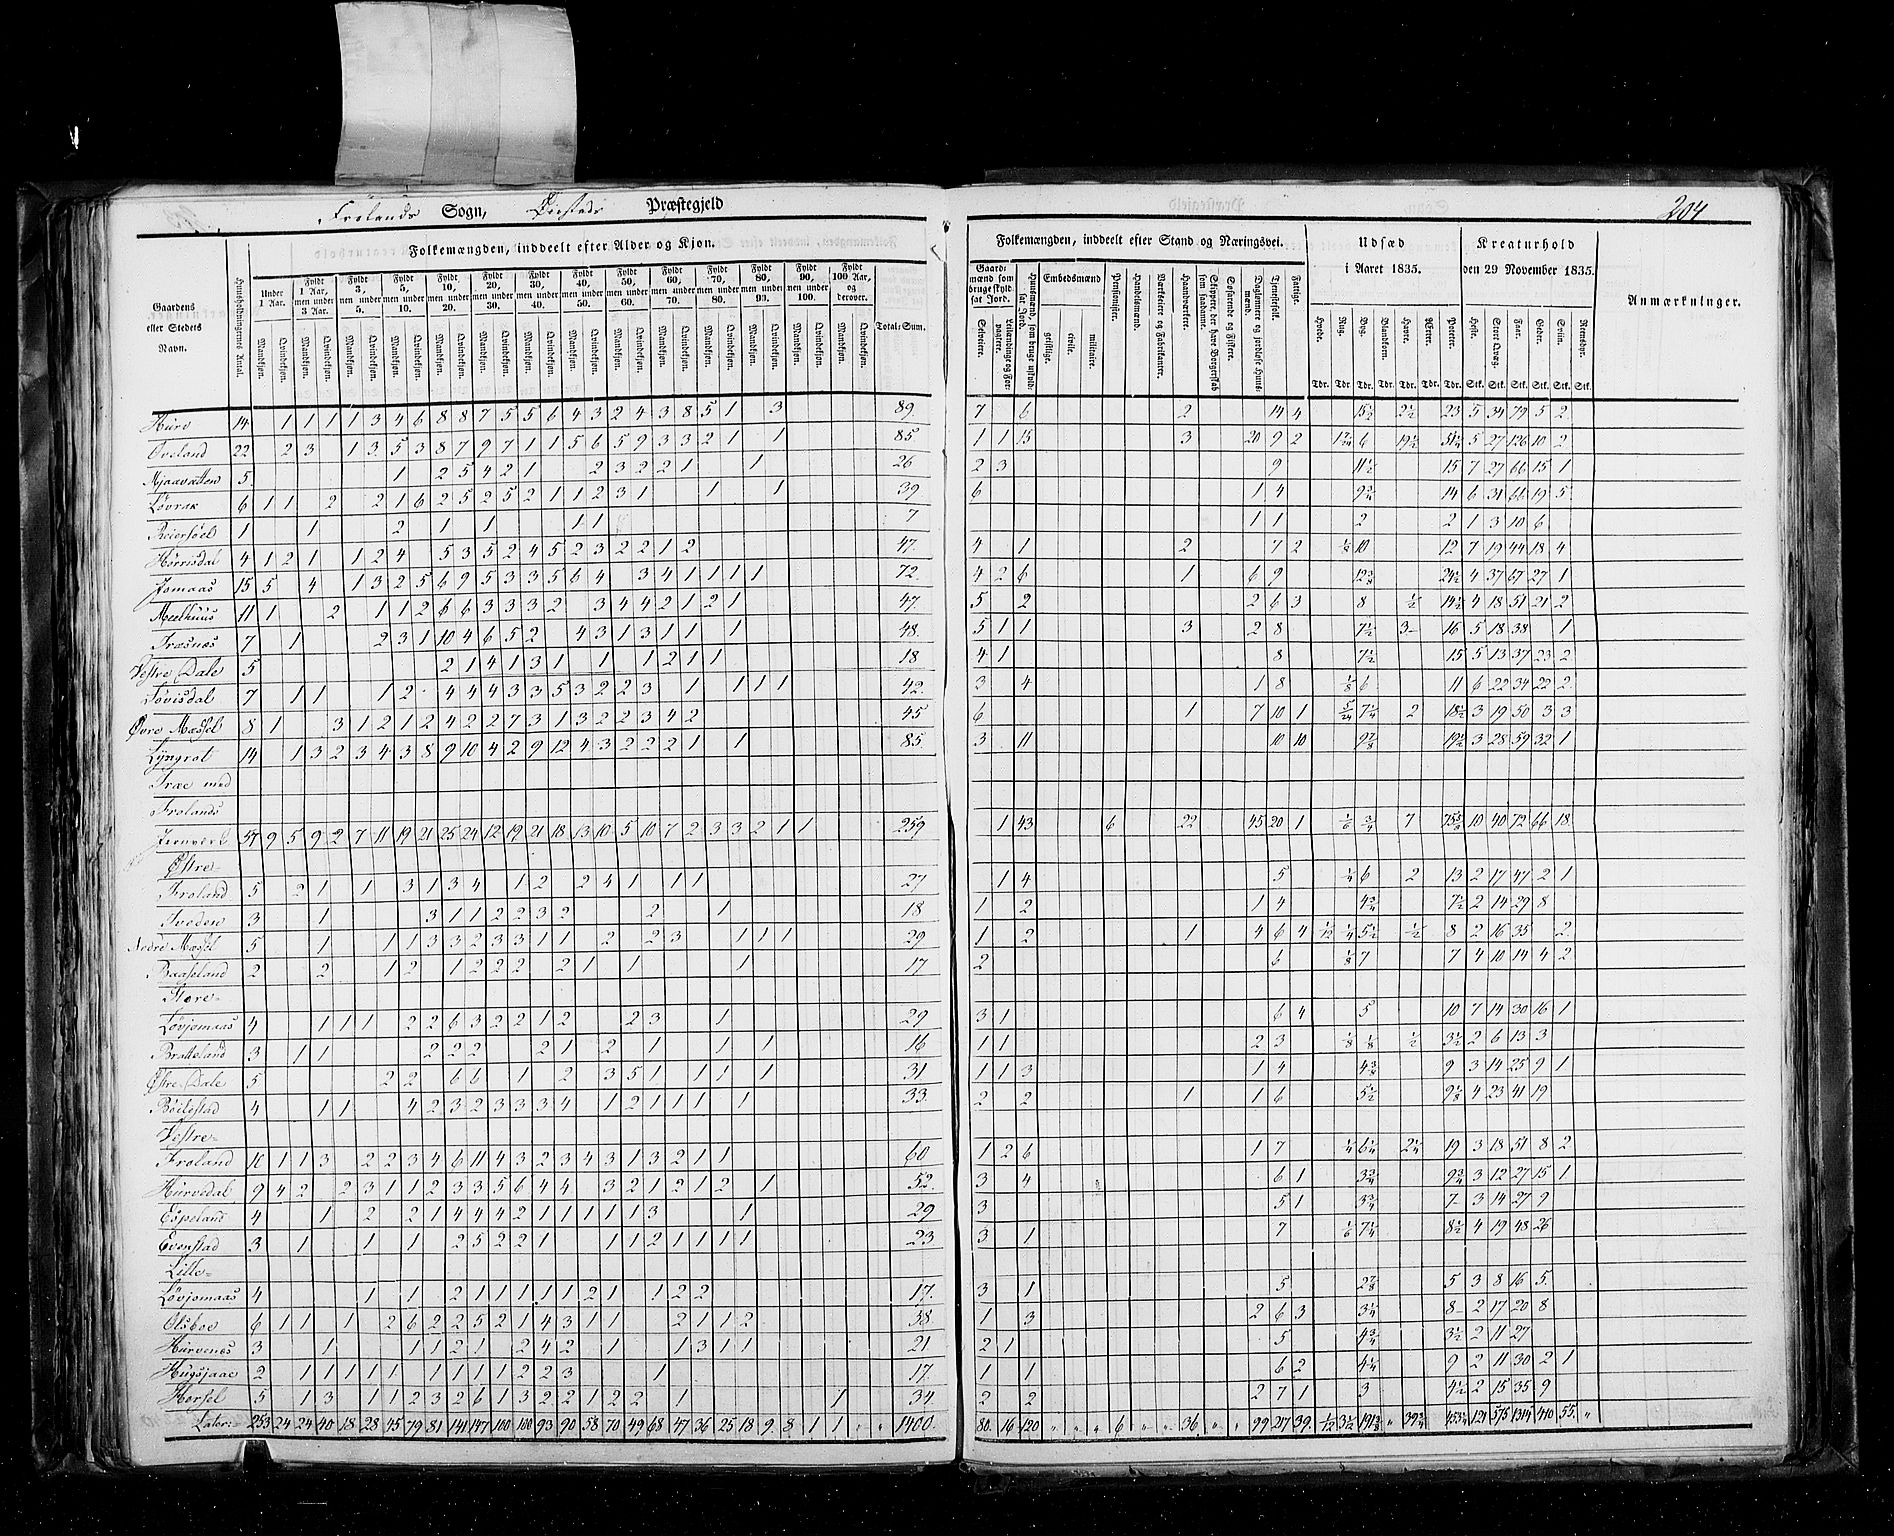 Frolands Sogn, Øiestads Præstegjeld
204
Folkemængden, inddeelt efter Alder og Kjøn.
Folkemængden, inddeelt efter Stand og Næringsvei.
Udsæd i Aaret 1835.
Kreaturhold den 29 November 1835.
Anmærkninger.
Gaardens eller Stedets Navn.
Huusholdningernes Antal.
Under 1 Aar.
Fyldt 1 Aar, men under 3 Aar.
Fyldt 3, men under 5.
Fyldt 5, men under 10.
Fyldt 10, men under 20.
Fyldt 20, men under 30.
Fyldt 30, men under 40.
Fyldt 40, men under 50.
Fyldt 50, men under 60.
Fyldt 60, men under 70.
Fyldt 70, men under 80.
Fyldt 80, men under 90.
Fyldt 90, men under 100.
Fyldt 100 Aar, og derover.
Mandkjøn. Qvindekjøn.
Total-Sum.
Gaardmænd som bruge skyldsat Jord.
Selveiere.
Leilændinge og Forpagtere.
Huusmænd, som bruge uskyldsat Jord.
Embedsmænd
geistlige. civile. militaire.
Pensionister.
Handelsmænd.
Værkseiere og Fabrikanter.
Haandværkere.
Skippere, der have Borgerskab som saadanne.
Søfarende og Fiskere.
Daglønnere og jordløse Huusmænd.
Tjenestefolk.
Fattige.
Hvede. Rug. Byg. Blandkorn. Havre. Ærter. Poteter.
Heste. Stort Qvæg. Faar. Geder. Sviin. Reensdyr.
Tdr. Tdr. Tdr. Tdr. Tdr. Tdr. Tdr. Stk. Stk. Stk. Stk. Stk. Stk.
Hurv 14 1 1 1 1 3 4 6 8 8 7 5 5 6 4 3 2 4 3 8 5 1 3 89. 7 6 2 14 4 15½ 2½ 23 5 34 79 5 2
Oveland 22 2 3 1 3 5 3 8 7 9 7 1 1 5 6 5 9 3 3 2 1 1 85 1 1 15 3 20 9 2 6 19½ 51¼ 5 27 126 10 2
Mjaavatten 5 1 2 5 4 2 1 2 3 2 2 1 1 26 2 3 9 11½ 15 7 27 66 15 1
Løvrak 6 1 1 2 2 1 6 2 5 2 5 2 1 1 2 3 1 1 1 39 6 1 4 9¾ 14 6 31 66 19 5
Reiersøel 1 1 2 1 1 1 1 7 1 1 2 2 1 3 10 6
Hørrisdal 4 1 2 1 1 2 4 5 3 5 2 4 5 2 3 2 2 1 2 47. 4 1 2 7 2 10 12 7 19 44 18 4
Jomaas 15 5 4 1 3 2 5 6 9 5 3 3 5 6 4 3 4 1 1 1 1 72. 4 2 6 1 6 9 24½ 4 37 67 27 1
Meelhuus 11 1 2 1 1 2 6 6 3 3 3 2 3 4 4 2 1 2 1 47. 5 2 2 6 3 8 ½ 14½ 4 18 51 21 2
Træsnæs 7 1 2 3 1 10 4 6 5 2 4 3 1 3 1 1 1 48. 5 1 1 3 2 8 7½ 3 16 5 18 38 1
Vestre Dale 5 2 1 4 1 3 1 1 1 2 1 1 18 4 1 8 7½ 15 5 13 37 23 2
Løvisdal 7 1 1 1 2 4 4 4 3 3 5 3 2 2 3 1 1 1 1 42. 3 4 1 8 ⅛ 6 11 6 22 34 22 2
Øvre Mæssel 8 1 3 1 2 1 2 4 2 2 7 3 1 3 2 2 3 4 2 45 6 1 7 10 1 7¼ 2 18½ 3 19 50 3 3
Lyngrot 14 1 3 2 3 4 3 8 9 10 4 2 9 12 4 3 2 2 2 1 1 85. 3 11 10 10 9⅞ 19½ 3 28 59 32 1
Træ med
Frolands
Jernverk 57 9 5 9 2 7 11 19 21 25 24 12 19 21 18 13 10 5 10 7 2 3 3 2 1 1 259 1 43 6 22 45 20 1 ⅙ ¾ 7 10 40 72 66 18
Østre-
Froland 5 2 1 1 3 1 3 4 1 2 2 4 1 1 1 27 1 4 5 ¼ 6 2 13 2 17 47 2 1
Tveden 3 1 3 1 1 2 2 3 2 2 1 18 1 2 1 4 4¾ 7½ 2 14 29 8
Nedre Mæssel 5 1 1 1 3 3 2 3 3 1 1 2 2 3 1 1 1 29 1 2 1 4 6 4 ¼ 5½ ½ 8 2 16 35 2
Baaseland 2 2 1 2 1 2 2 2 2 1 1 1 17 2 6 ⅛ 7 7 4 10 14 4 2
Store-
Løvjomaas 4 1 1 1 2 2 6 3 2 2 1 2 2 3 1 29 3 1 6 4 5 10 7 14 30 16 1
Bratteland 3 1 1 2 2 2 2 1 2 1 1 1 16 1 1 2 3 ⅛ ½ 3½ 2 6 13 3
Østre Dale 5 2 2 6 6 1 2 3 5 1 1 1 1 31 1 1 3 1 4 9 3 14 25 9 1
Bøilestad 4 1 1 4 2 3 2 3 3 3 4 1 2 1 1 1 1 33 2 2 1 1 6 5½ 4 23 41 19
Vestre-
Froland 10 1 1 3 2 2 3 4 6 11 4 3 2 3 4 3 1 3 2 1 1 60 1 2 6 1 7 ¼ 6¼ 2¼ 19 3 18 51 8 2
Hurvedal 9 4 2 2 3 1 1 2 3 3 5 6 4 4 3 2 1 2 1 2 1 52. 3 4 6 1 3¾ 9¾ 3 12 27 15 1
Espeland 4 1 2 2 1 4 4 4 2 1 1 1 1 1 3 1 29 3 5 1 3¾ 7 3 14 27 9
Evenstad 3 1 1 1 2 5 2 2 1 1 1 2 1 1 1 1 23 3 1 7 ⅙ 7¼ 8½ 4 19 48 26
Lille-
Løvjomaas 4 1 1 2 1 1 1 1 1 2 1 1 2 2 17. 3 1 5 2⅞ 5 3 8 16 5
Olsboe 6 1 1 1 2 6 2 2 5 2 1 4 3 1 1 2 1 1 2 38 1 3 2 6 3 3¼ 8 2 17 20 8
Hurvenes 3 1 1 1 2 1 2 4 2 1 1 3 1 1 21 2 1 5 4¾ 3½ 2 11 27
Hugsjaae 2 1 1 1 1 1 1 1 1 1 2 2 3 1 17. 1 1 6 2 4¼ 9 2 11 30 2 1
Hersel 5 1 3 1 1 2 3 2 6 1 3 2 2 1 2 2 1 1 34 2 2 2 7 1 3 4½ 2 15 35 9
Later: 253 24 24 40 18 28 45 79 81 141 147 100 100 93 90 58 70 49 68 47 36 25 18 9 8 1 1 „ „ 1400. 80. 16 120 „ „ „ 6 „ „ 36 „ „ 99 217 39. 3½ 191⅜ „ 39¾ 453¼ 121 575 1314 410 55. „